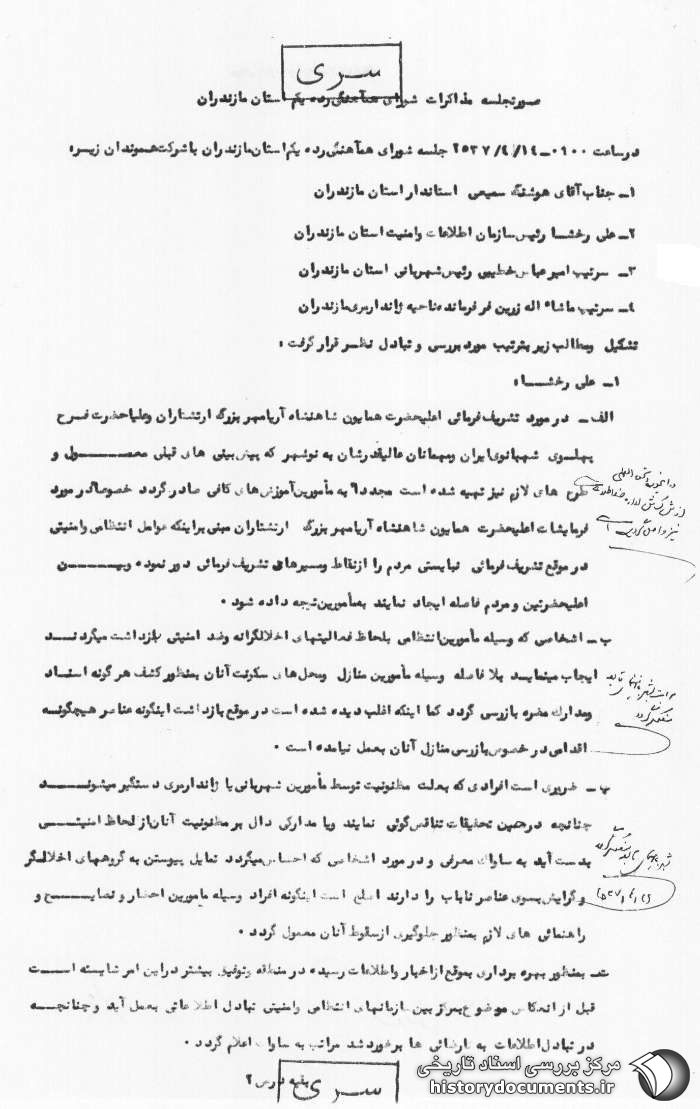 سری
صورتجلسه مذاکرات شورای هماهنگی رده یکم استان مازندران
در ساعت ۰۱۰۰ـ ۲۵۳۷/۴/۱۴ جلسه شورای هماهنگی رده یکم استان مازندران با شرکت هموندان زیر :
۱ـ جناب آقای هوشنگ سمیعی استاندار استان مازندران
۲ـ علی رخشا رئیس سازمان اطلاعات وامنیت استان مازندران
۳ـ سرتیپ امیرعباس خطیبی رئیس شهربانی استان مازندران
۴ـ سرتیپ ماشاء اله زرین فر فرمانده ناحیه ژاندارمری مازندران
تشکیل ومطالب زیر بترتیب مورد بررسی و تبادل نظر قرار گرفت :
۱ـ علی رخشا :
الف ـ در مورد تشریف فرمائی اعلیحضرت همایون شاهنشاه آریامهر بزرگ ارتشتاران وعلیاحضرت فرح
پهلوی شهبانوی ایران ومهمانان عالیقدرشان به نوشهر که پیش بینی های قبلی معمول و
طرح های لازم نیز تهیه شده است مجددا" به مأمورین آموزش های کافی صادر گردد خصوصا" در مورد
فرمایشات اعلیحضرت همایون شاهنشاه آریامهر بزرگ ارتشتاران مبنی براینکه عوامل انتظامی وامنیتی
در موقع تشریف فرمائی نبایستی مردم را از نقاط ومسیرهای تشریف فرمائی دور نموده وبین
اعلیحضرتین و مردم فاصله ایجاد نمایند به مأمورین توجه داده شود .
ب ـ اشخاصی که وسیله مأمورین انتظامی بلحاظ فعالیتهای اخلالگرانه وضد امنیتی بازداشت میگردند
ایجاب مینماید بلا فاصله وسیله مأمورین منازل ومحل های سکونت آنان بمنظور کشف هر گونه اسناد
ومدارک مضره بازرسی گردد کما اینکه اغلب دیده شده است در موقع بازداشت اینگونه عناصر هیچگونه
اقدامی در خصوص بازرسی منازل آنان بعمل نیامده است .
پ ـ ضروری است افرادی که بعلت مظنونیت توسط مأمورین شهربانی یا ژاندارمری دستگیر میشوند
چنانچه در حین تحقیقات تناقض گوئی نمایند ویا مدارکی دال بر مظنونیت آنان از لحاظ امنیتی
بدست آید به ساواک معرفی و در مورد اشخاصی که احساس میگردد تمایل پیوستن به گروههای اخلالگر
و گرایش بسوی عناصر ناباب را دارند اصلح است اینگونه افراد وسیله مأمورین احضار و نصایح و
راهنمائی های لازم بمنظور جلوگیری از سقوط آنان معمول گردد .
ت ـ بمنظور بهره برداری بموقع از اخبار واطلاعات رسیده در منطقه وتوفیق بیشتر در این امر شایسته است
قبل از انعکاس موضوع بمرکز بین سازمانهای انتظامی وامنیتی تبادل اطلاعاتی بعمل آید وچنانچه
در تبادل اطلاعات به نارسائی ها برخورد شد مراتب به ساواک اعلام گردد .
بقیه در ص ۲
سری
مرکز بررسی اسناد تاریخی
historydocuments.ir